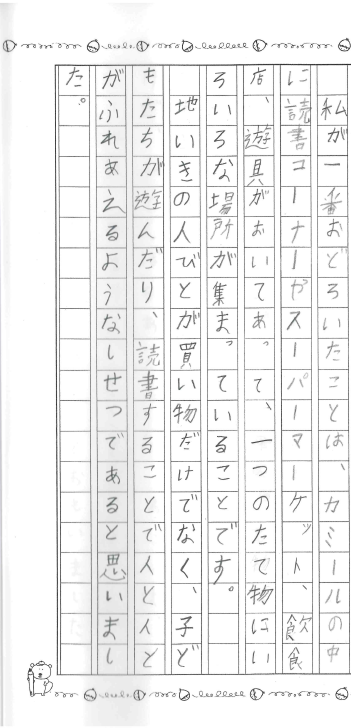 私が一番おどろいたことは、カミールの中
に読書コーナーやスーパーマーケット、飲食
店、遊具がおいてあって、一つのたて物にい
ろいろな場所が集まっていることです。
地いきの人びとが買い物だけでなく、子ど
もたちが遊んだり、読書することで人と人と
がふれあえるようなしせつであると思いまし
た。